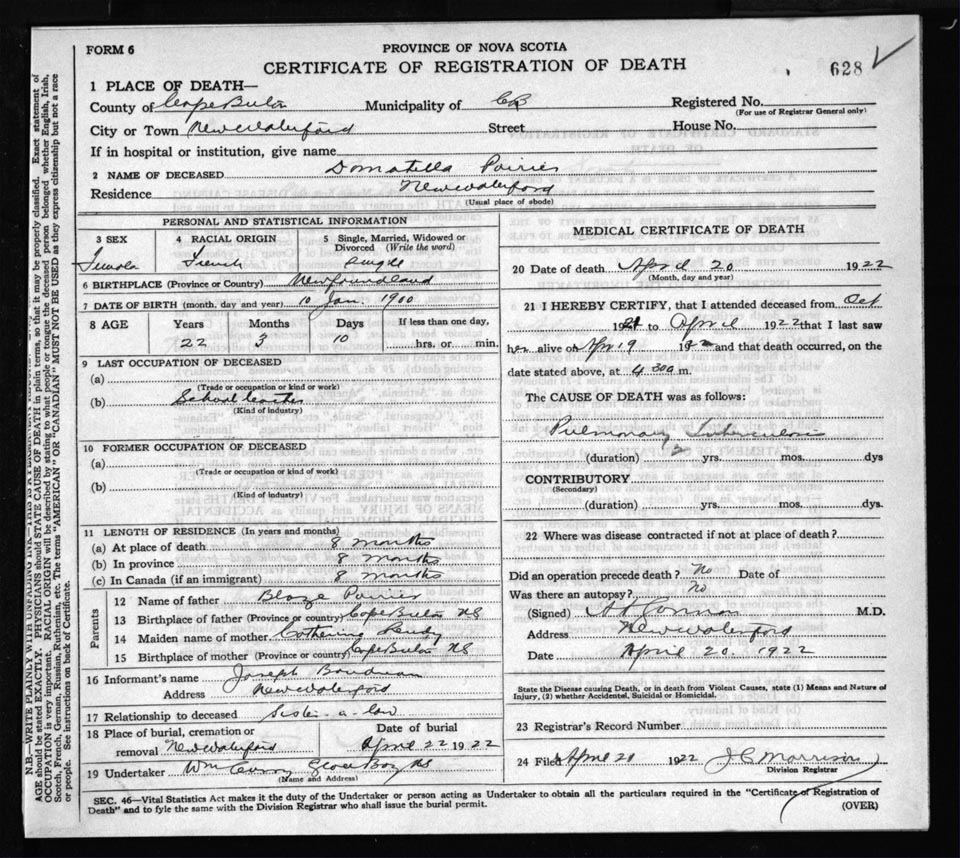 FORM 6
PROVINCE OF NOVA SCOTIA
CERTIFICATE OF REGISTRATION OF DEATH
628
1 PLACE OF DEATH—
County of Cape Breton Municipality of CB Registered No.
(For use of Registrar General only)
City or Town New Waterford Street House No.
If in hospital or institution, give name
2 NAME OF DECEASED Domatella Poirier
Residence New Waterford
(Usual place of abode)
PERSONAL AND STATISTICAL INFORMATION
3 SEX 4 RACIAL ORIGIN 5 Single, Married, Widowed or Divorced (Write the word)
Female French Single
6 BIRTHPLACE (Province or Country) Newfoundland
7 DATE OF BIRTH (month, day and year) 10 Jan. 1900
8 AGE Years Months Days If less than one day,
22 3 10 hrs. or min.
9 LAST OCCUPATION OF DECEASED
(a)
(Trade or occupation or kind of work)
(b) School teacher
(Kind of industry)
10 FORMER OCCUPATION OF DECEASED
(a)
(Trade or occupation or kind of work)
(b)
(Kind of industry)
11 LENGTH OF RESIDENCE (In years and months)
(a) At place of death 8 months
(b) In province 8 months
(c) In Canada (if an immigrant) 8 months
Parents
12 Name of father Blaze Poirier
13 Birthplace of father (Province or country) Cape Breton NS
14 Maiden name of mother
15 Birthplace of mother (Province or country) Cape Breton NS
16 Informant's name Joseph
Address New Waterford
17 Relationship to deceased Sister-a-law
18 Place of burial, cremation or Date of burial
removal New Waterford April 22 1922
19 Undertaker Wm Curry Glace Bay NS
(Name and Address)
MEDICAL CERTIFICATE OF DEATH
20 Date of death April 20 1922
(Month, day and year)
21 I HEREBY CERTIFY, that I attended deceased from Oct
1921 to April 1922 that I last saw
her alive on Apr 19 1922 and that death occurred, on the
date stated above, at 4.30 a m.
The CAUSE OF DEATH was as follows:
Pulmonary Tuberculosis
(duration) yrs. mos. dys
CONTRIBUTORY
(Secondary)
(duration) yrs. mos. dys.
22 Where was disease contracted if not at place of death?
Did an operation precede death? No Date of
Was there an autopsy? No
(Signed) M.D.
Address New Waterford
Date April 20. 1922
State the Disease causing Death, or in death from Violent Causes, state (1) Means and Nature of
Injury, (2) whether Accidental, Suicidal or Homicidal.
23 Registrar's Record Number
24 Filed April 20 1922 J C Morrison
Division Registrar
SEC. 46—Vital Statistics Act makes it the duty of the Undertaker or person acting as Undertaker to obtain all the particulars required in the "Certificate of Registration of
Death" and to fyle the same with the Division Registrar who shall issue the burial permit.
(OVER)
N.B.—WRITE PLAINLY WITH UNFADING INK—THIS IS A PERMANENT RECORD.
AGE should be stated EXACTLY. PHYSICIANS should STATE CAUSE OF DEATH in plain terms, so that it may be properly classified. Exact statement of
OCCUPATION is very important. RACIAL ORIGIN will be described by stating to what people or tongue the deceased person belonged whether English, Irish,
Scotch, French, German, Russian, Ruthenian, etc. The terms "AMERICAN" OR "CANADIAN" MUST NOT BE USED as they express citizenship but not a race
or people. See instructions on back of Certificate.